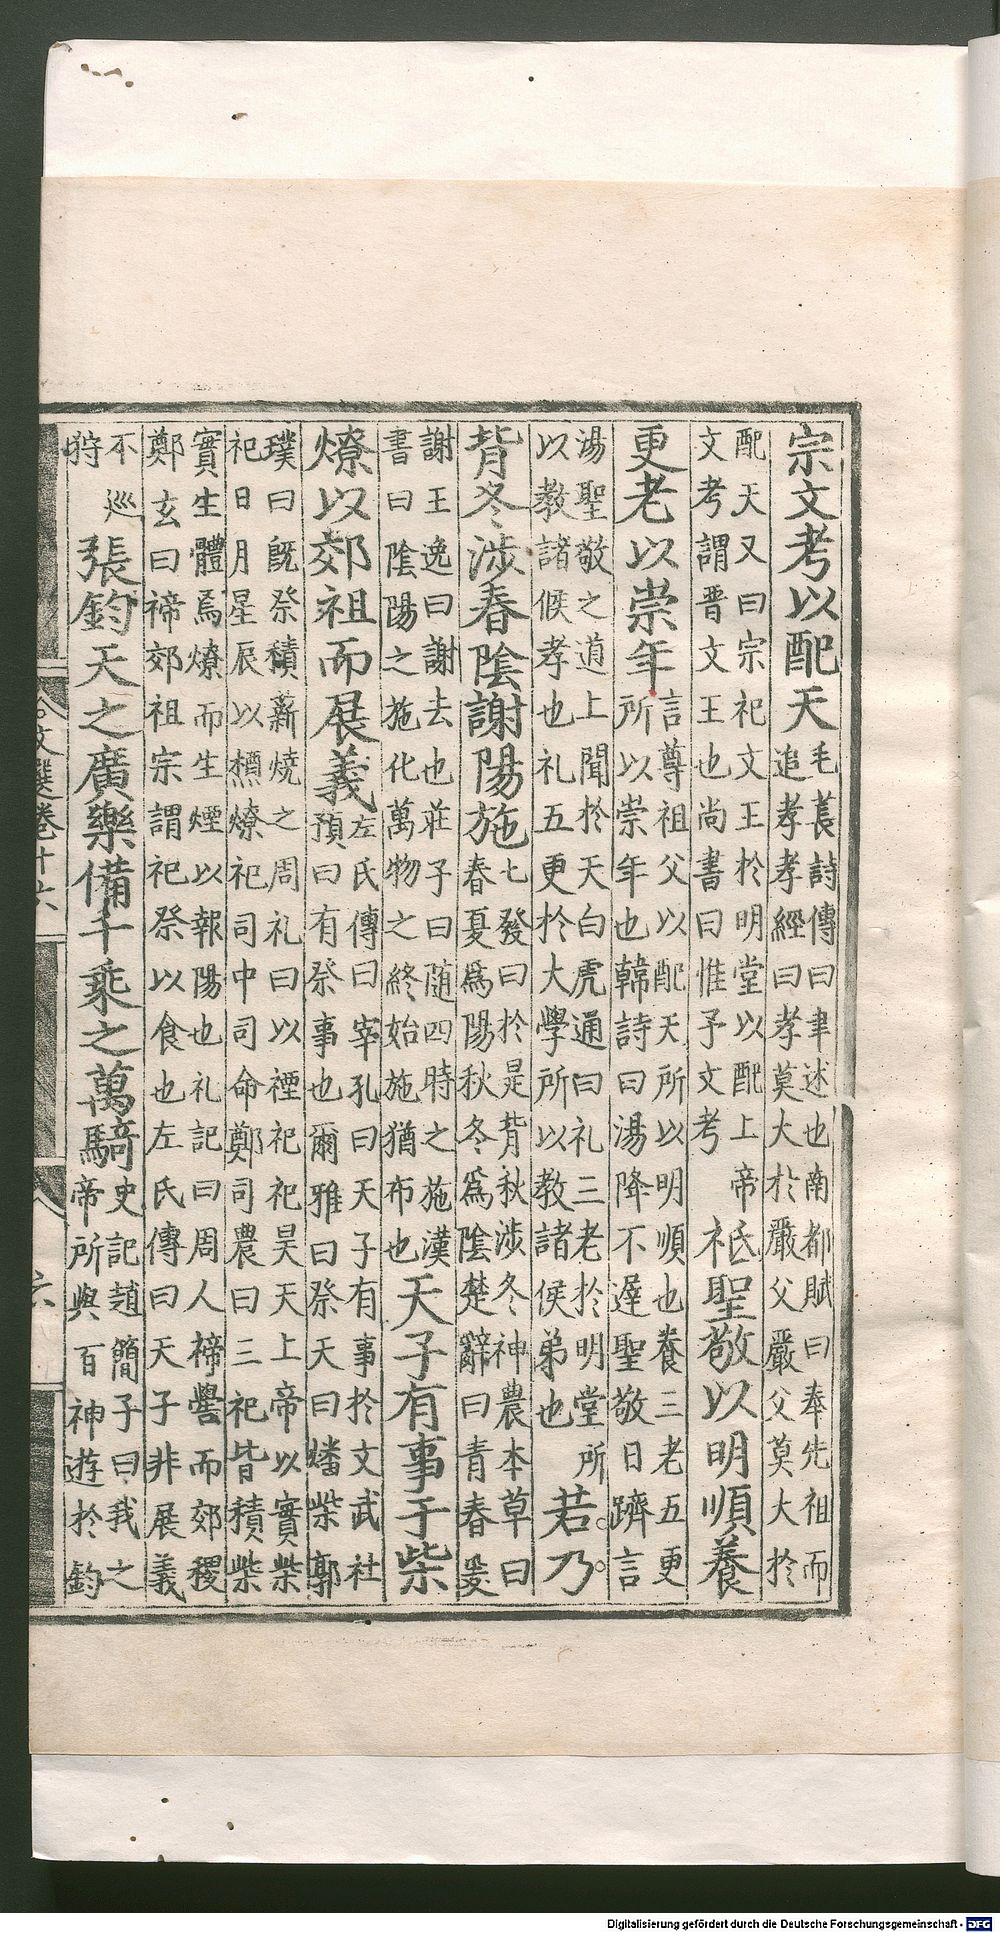 宗文考以配天
毛萇詩傳曰聿述也南都賦曰奉先祖而
追孝孝經曰孝莫大於嚴父嚴父莫大於
配天又曰宗祀文王於明堂以配上帝
文考謂晋文王也尚書曰惟予文考
祗聖敬以明順養
更老以崇年
言尊祖父以配天所以明順也養三老五更
所以崇年也韓詩曰湯降不遲聖敬日躋言
湯聖敬之道上聞於天白虎通曰礼三老於明堂所
以教諸候孝也礼五更於大學所以教諸侯弟也
若乃
背冬涉春陰謝陽施
七發曰於是背秋涉冬神農本草曰
春夏爲陽秋冬爲陰楚辭曰青春爰
謝王逸曰謝去也莊子曰随四時之施漢
書曰陰陽之施化萬物之終始施猶布也
天子有事于柴
燎以郊祖而展義
左氏傳曰宰孔曰天子有事於文武社
預曰有祭事也爾雅曰祭天曰燔柴郭
璞曰既祭積薪燒之周礼曰以禋祀祀昊天上帝以實柴
祀日月星辰以槱燎祀司中司命鄭司農曰三祀皆積柴
實生體焉燎而生煙以報陽也礼記曰周人禘嚳而郊稷
鄭玄曰禘郊祖宗謂祀祭以食也左氏傳曰天子非展義
不巡
狩
張鈞天之廣樂備千乘之萬騎
史記趙簡子曰我之
帝所與百神遊於鈞
文選卷十六
六
Digitalisierung gefördert durch die Deutsche Forschungsgemeinschaft - DFG